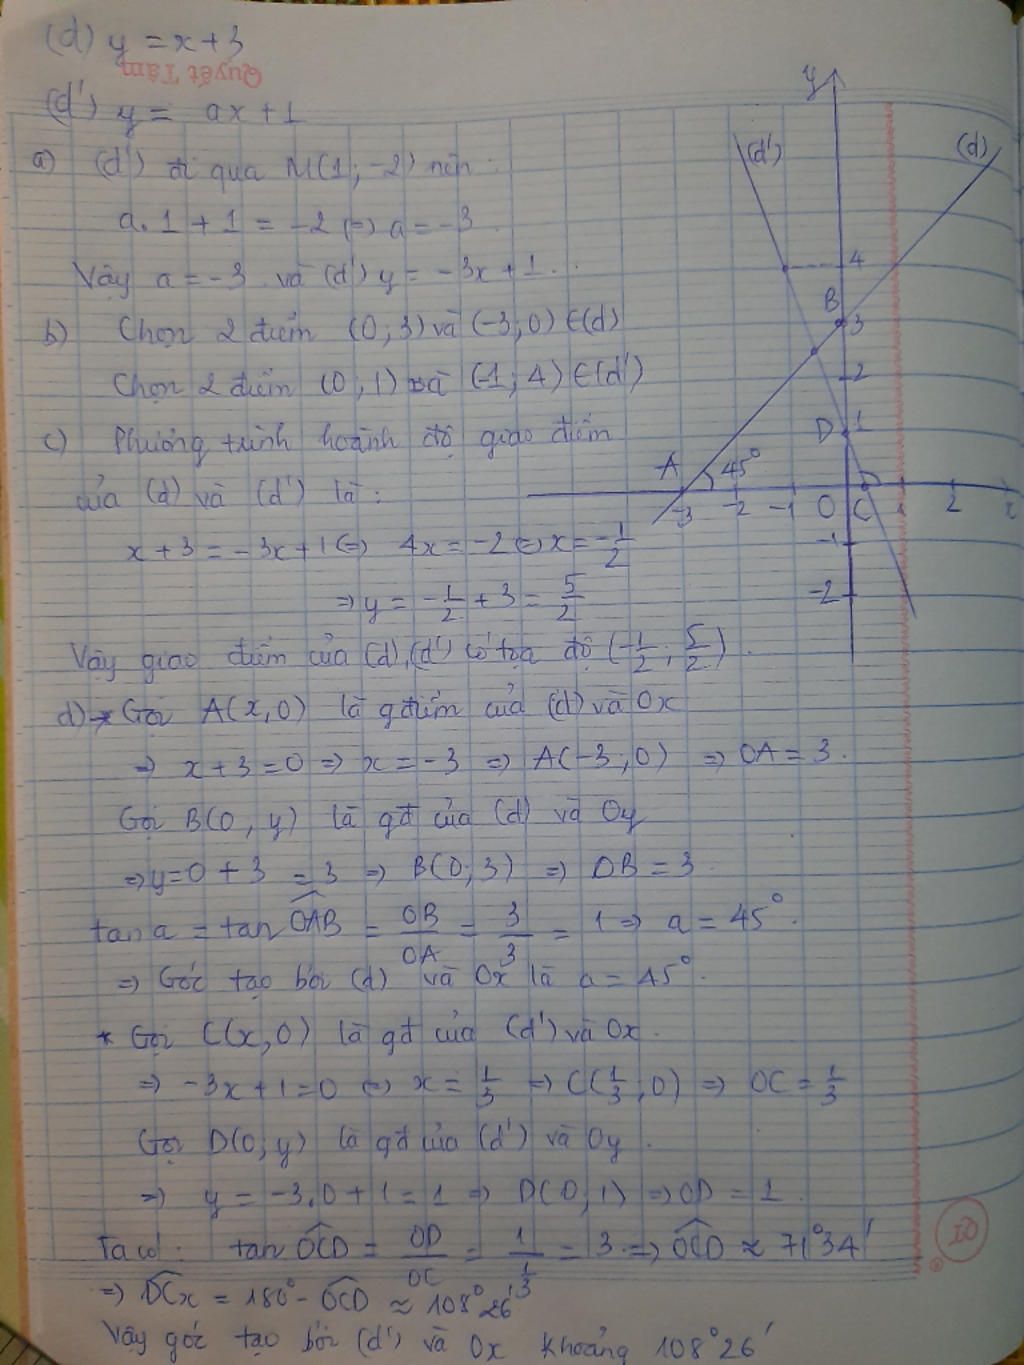 (d) y = x + 3
Quyết Tâm
(d') y = ax + 1
a) (d') đi qua M(1; -2) nên :
a. 1 + 1 = -2 (=) a = -3
Vậy a = -3 và (d') y = -3x + 1.
b) Chọn 2 điểm (0, 3) và (-3, 0) ∈ (d)
Chọn 2 điểm (0, 1) và (-1; 4) ∈ (d')
c) Phương trình hoành độ giao điểm
của (d) và (d') là :
x + 3 = -3x + 1 (=) 4x = -2 (=) x = -1/2
=> y = -1/2 + 3 = 5/2
Vậy giao điểm của (d), (d') có tọa độ (-1/2; 5/2).
d) * Gọi A(x, 0) là gđiểm của (d) và Ox
=> x + 3 = 0 => x = -3 => A(-3; 0) => OA = 3.
Gọi B(0, y) là gđ của (d) và Oy
=> y = 0 + 3 = 3 => B(0; 3) => OB = 3.
tan a = tan OAB = OB/OA = 3/3 = 1 => a = 45°.
=> Góc tạo bởi (d) và Ox là a = 45°.
* Gọi C(x, 0) là gđ của (d') và Ox.
=> -3x + 1 = 0 (=) x = 1/3 => C(1/3; 0) => OC = 1/3
Gọi D(0; y) là gđ của (d') và Oy.
=> y = -3.0 + 1 = 1 => D(0, 1) => OD = 1.
Ta có : tan OCD = OD/OC = 1/(1/3) = 3 => OCD ≈ 71°34'
=> DCx = 180° - OCD ≈ 108°26'
Vậy góc tạo bởi (d') và Ox khoảng 108°26'
y
(d')
(d)
4
B
3
2
D 1
A 45°
-3 -2 -1 O C 2 x
-1
-2